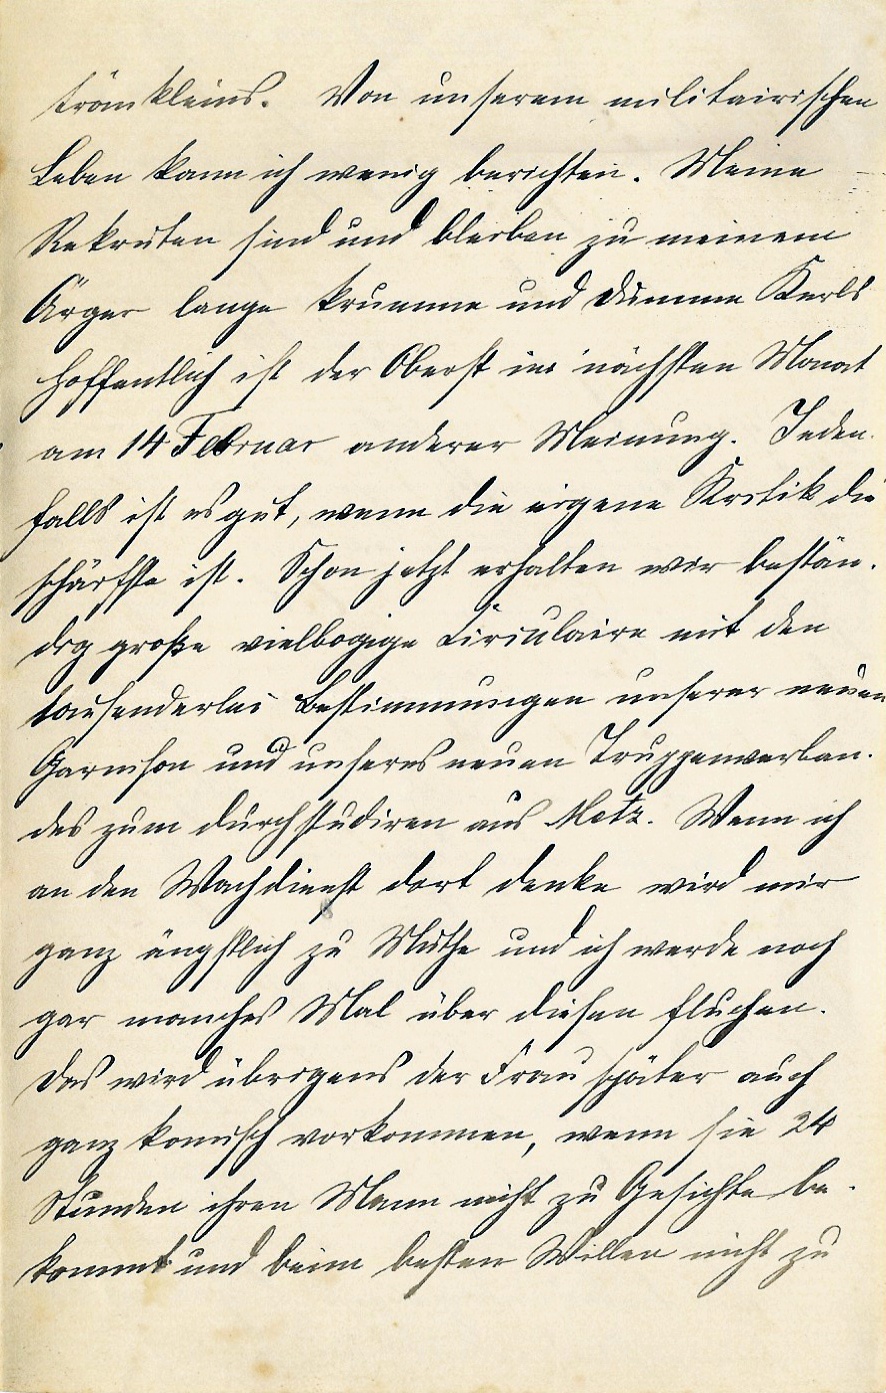 tränkleins. Von unserem militairischen
Leben kann ich wenig berichten. Meine
Rekruten sind und bleiben zu meinem
Ärger lange krumme und dumme Kerls
hoffentlich ist der Oberst im nächsten Monat
am 14 Februar anderer Meinung. Jeden-
falls ist es gut, wenn die eigene Kritik die
schärfste ist. Schon jetzt erhalten wir bestän-
dig große vielbogige Circulaire mit den
tausenderlei Bestimmungen unserer neuen
Garnison und unseres neuen Truppenverban-
des zum durchstudiren aus Metz. Wenn ich
an den Wachdienst dort denke wird mir
ganz ängstlich zu Muthe und ich werde noch
gar manches Mal über diesen fluchen.
Das wird übrigens der Frau später auch
ganz komisch vorkommen, wenn sie 24
Stunden ihren Mann nicht zu Gesichte be-
kommt und beim besten Willen nicht zu